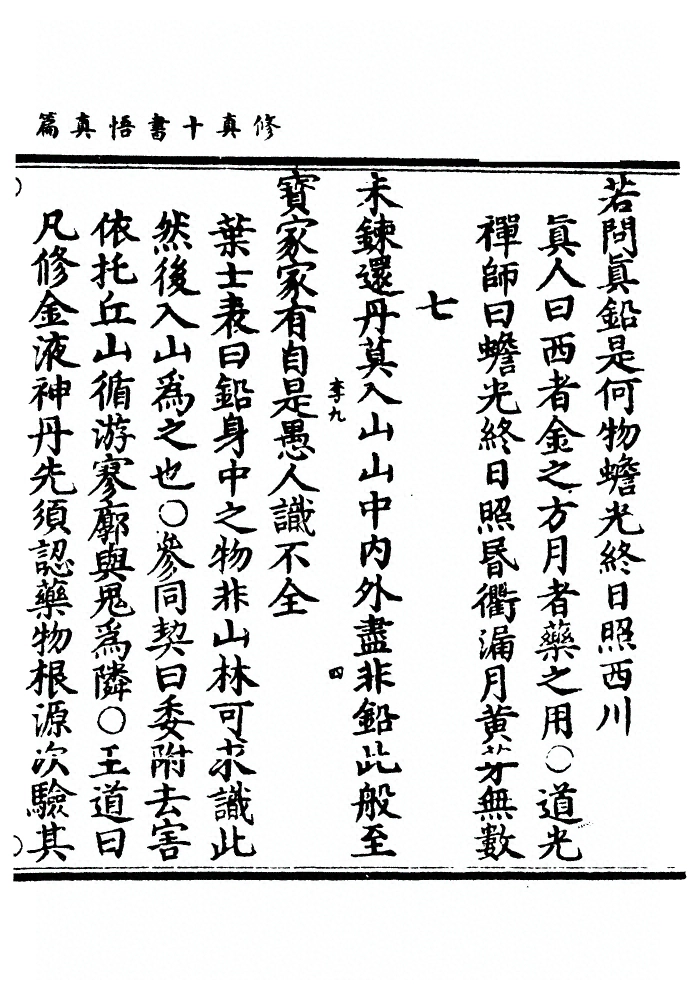 修真十書悟真篇
若問眞鉛是何物蟾光終日照西川
眞人曰西者金之方月者藥之用〇道光
禪師曰蟾光終日照昬衢漏月黄芽無數
七
未鍊還丹莫入山山中内外盡非鉛此般至
李九
四
寳家家有自是愚人識不全
葉士表曰鉛身中之物非山林可求識此
然後入山爲之也〇叅同契曰委附去害
依托丘山循游寥廓與鬼爲隣〇王道曰
凡修金液神丹先須認藥物根源次驗其